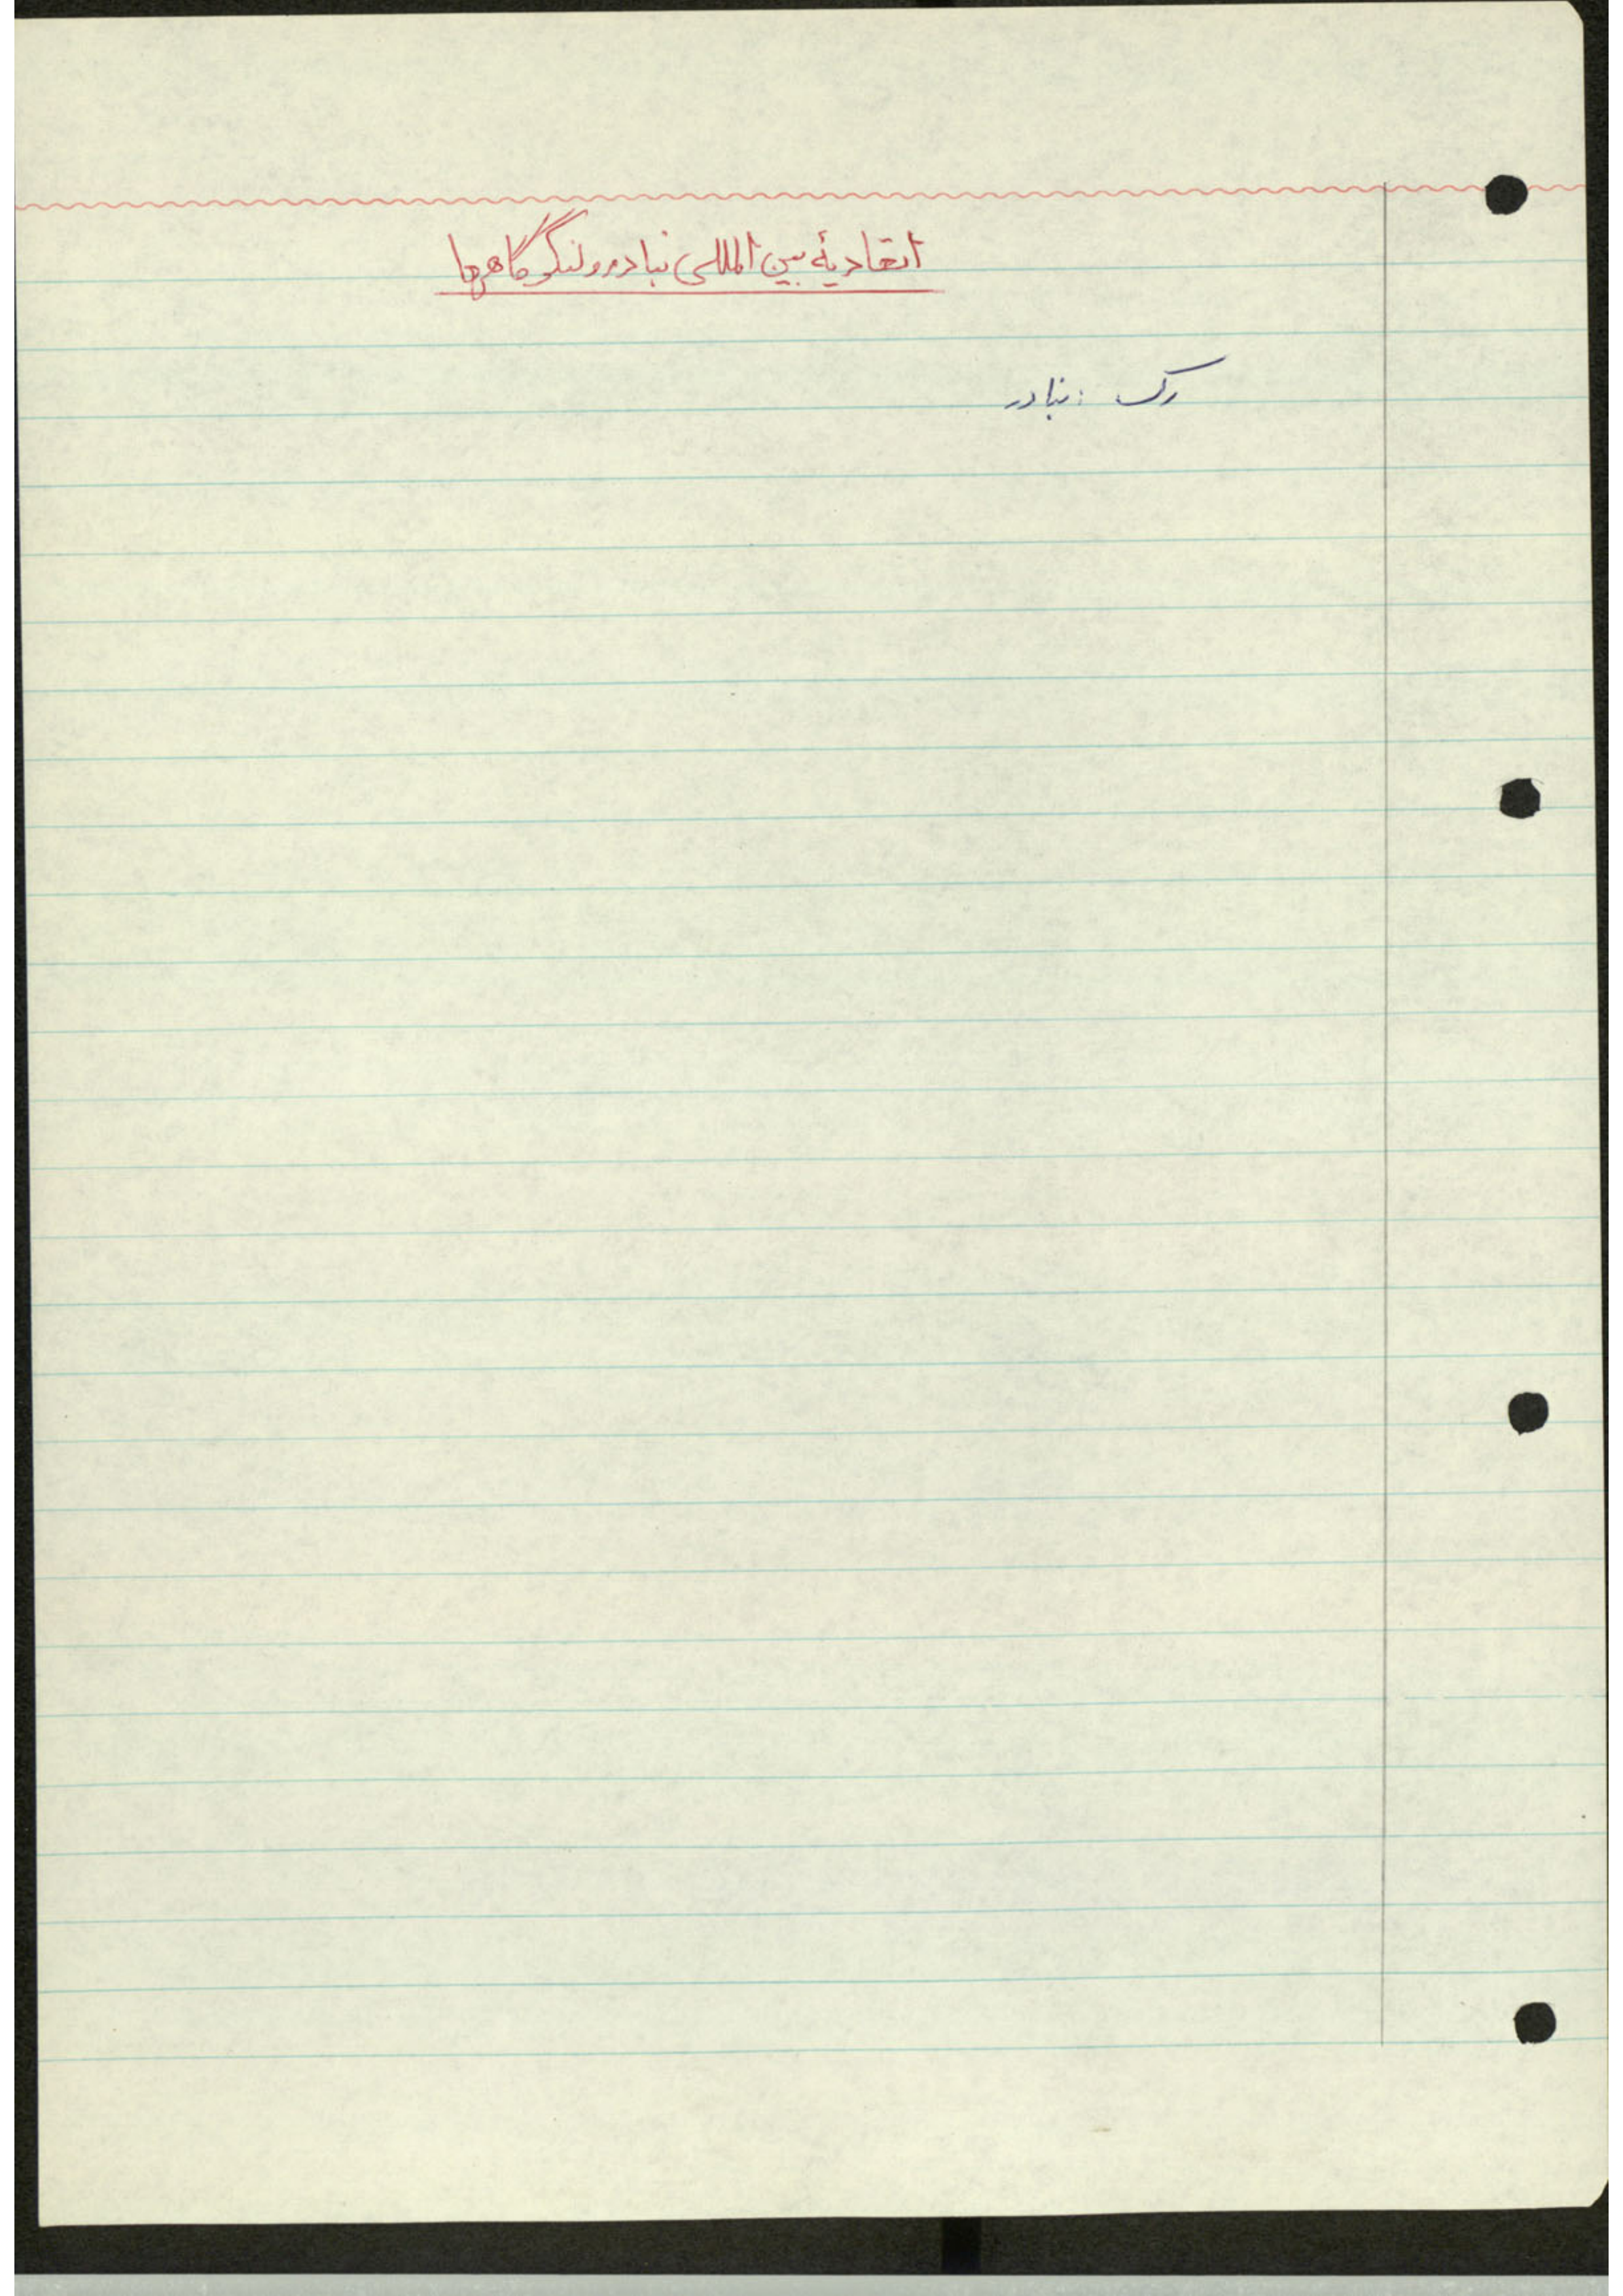 اتحادیهٔ بین المللی بنادر و لنگرگاهها
رک : بنادر